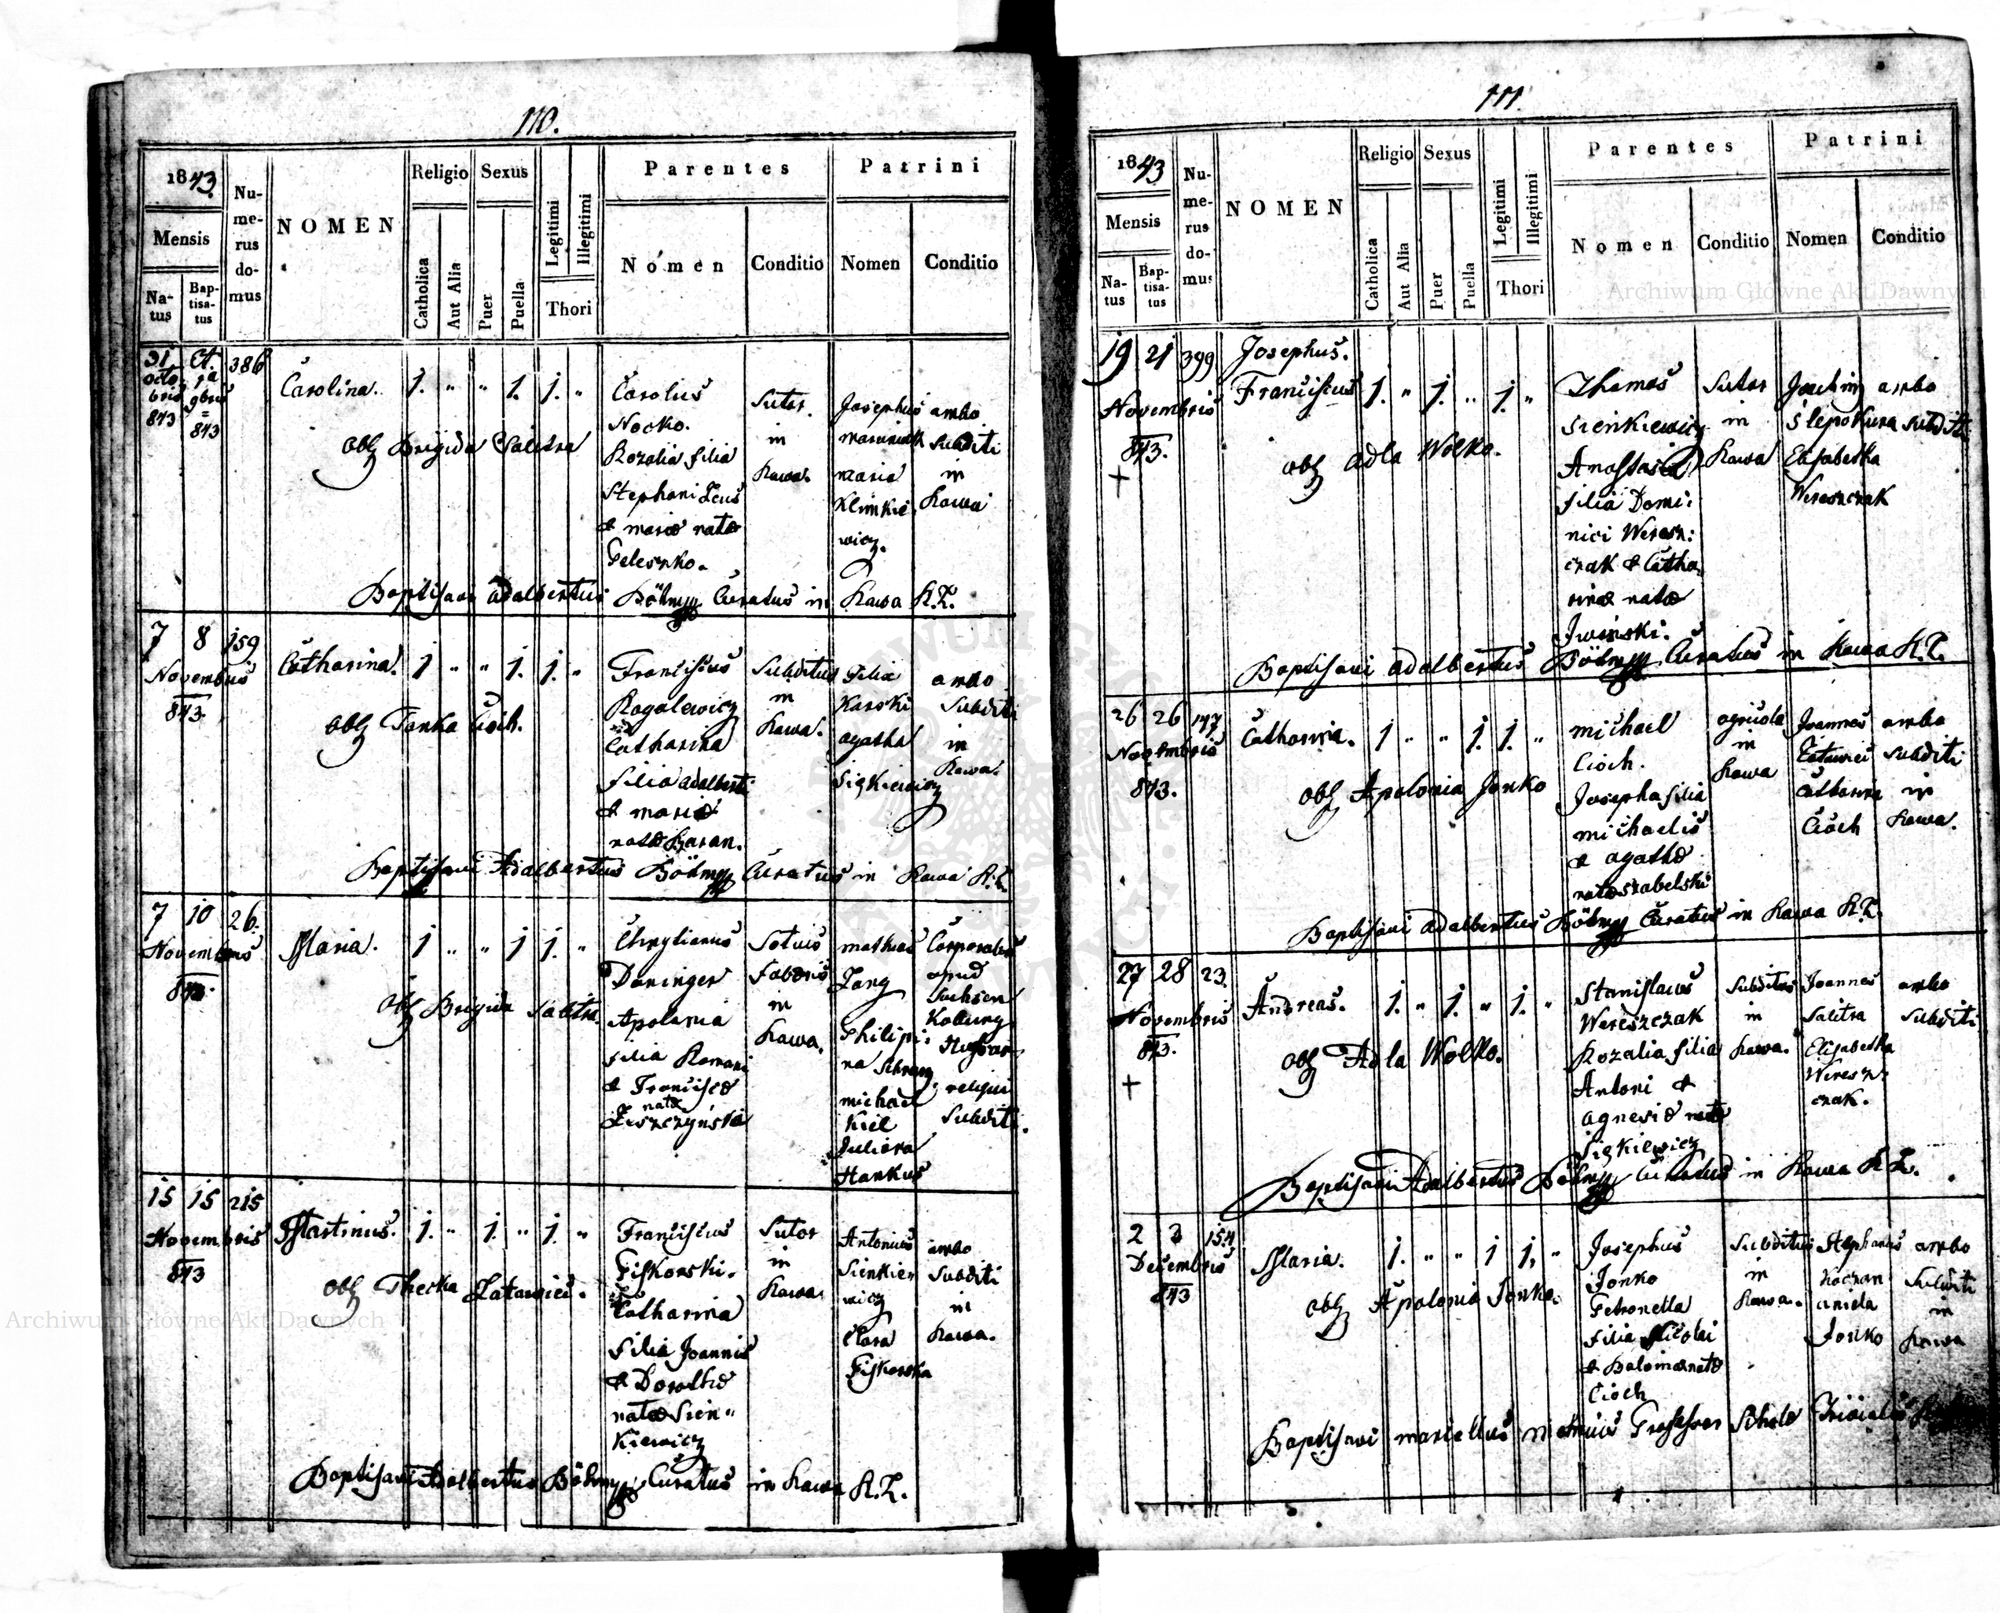 110.
1843
Mensis
Na-
tus
Bap-
tisa-
tus
Nu-
me-
rus
do-
mus
NOMEN
Religio
Catholica
Aut Alia
Sexus
Puer
Puella
Legitimi
Illegitimi
Thori
Parentes
Nomen
Conditio
Patrini
Nomen
Conditio
31
octo
bris
843
386
Carolina.
1. " " 1. 1. "
obs Brigida Salitra
Carolus
Nocko.
Rozalia filia
Stephani
& mariæ natæ
Peleszko.
Sutor.
in
Rawa.
Josephus
maria
Klimkie
wicz.
ambo
Subditi
in
Rawa
Baptisavi Adalbertus Böhm Curatus in Rawa R.L.
7 8 159
Novembris
843.
Catharina.
1 " " 1. 1. "
Franciscus
Rogalewicz
Catharina
filia adalberti
& mariæ
natæ Baran.
Subditus
in
Rawa.
Karski
agatha
Siskiewicz
ambo
Subditi
in
Rawa.
Baptisavi Adalbertus Böhm Curatus in Rawa R.L.
7 10 26.
Novembris
843.
Maria.
1 " " 1 1. "
obs Brigida Salitra
Daninger
Apolonia
filia Romani
& Francisca
natæ
Leszczyńska
in
Rawa.
mathias
Lang
Philipi-
na
michael
Kiel
Juliana
Hankus
Corporalis
apud
Sachsen
Koburg
reliqui
Subditi.
15 15 215
Novembris
843
Martinus.
1. " 1. " 1. "
obs Thecka Latawiec.
Franciscus
Piskorski.
Catharina
filia Joannis
& Dorothæ
natæ Sien-
kiewicz
Sutor
in
Rawa
Antonius
Sienkie
wicz
Clara
Piskorska
ambo
Subditi
in
Rawa.
Baptisavi Adalbertus Böhm Curatus in Rawa R.L.
111.
1843
Mensis
Na-
tus
Bap-
tisa-
tus
Nu-
me-
rus
do-
mus
NOMEN
Religio
Catholica
Aut Alia
Sexus
Puer
Puella
Legitimi
Illegitimi
Thori
Parentes
Nomen
Conditio
Patrini
Nomen
Conditio
19 21 399
Novembris
843.
Josephus.
Franciscus
1. " 1. " 1. "
obs Adla Wolko.
Thomas
Sienkiewicz
Anastasia
filia Domi-
nici Weresz-
czak & Catha-
rinæ natæ
Iwiński.
Sutor
in
Rawa
Joachim
Slepokura
Elisabetha
Wereszczak
ambo
subditi
Baptisavi adalbertus Böhm Curatus in Rawa R.L.
26 26 147
Novembris
843.
Catharina.
1 " " 1. 1. "
obs Apolonia Jonko
michael
Cioch.
Josepha filia
michaelis
& agathæ
natæ szabelski
agricola
in
Rawa
Joannes
Latawiec
Catharina
Cioch
ambo
Subditi
in
Rawa.
Baptisavi adalbertus Böhm Curatus in Rawa R.L.
27 28 23.
Novembris
843.
Andreas.
1. " 1. " 1. "
obs Adla Wolko.
Stanislaus
Wereszczak
Rozalia filia
Antoni &
agnesiæ natæ
Siskiewicz
Subditus
in
Rawa.
Joannes
Salitra
Elisabetha
Weresz-
czak.
ambo
Subditi
Baptisavi Adalbertus Böhm Curatus in Rawa R.L.
2 3 154
Decembris
843
Maria.
1. " " 1 1. "
obs Apolonia Jonko.
Josephus
Jonko
Petronella
filia Nicolai
& natæ
Cioch
Subditus
in
Rawa.
Stephanus
Koczan
aniela
Jonko
ambo
Subditi
in
Rawa
Baptisavi
Archiwum Główne Akt Dawnych
Archiwum Główne Akt Dawnych